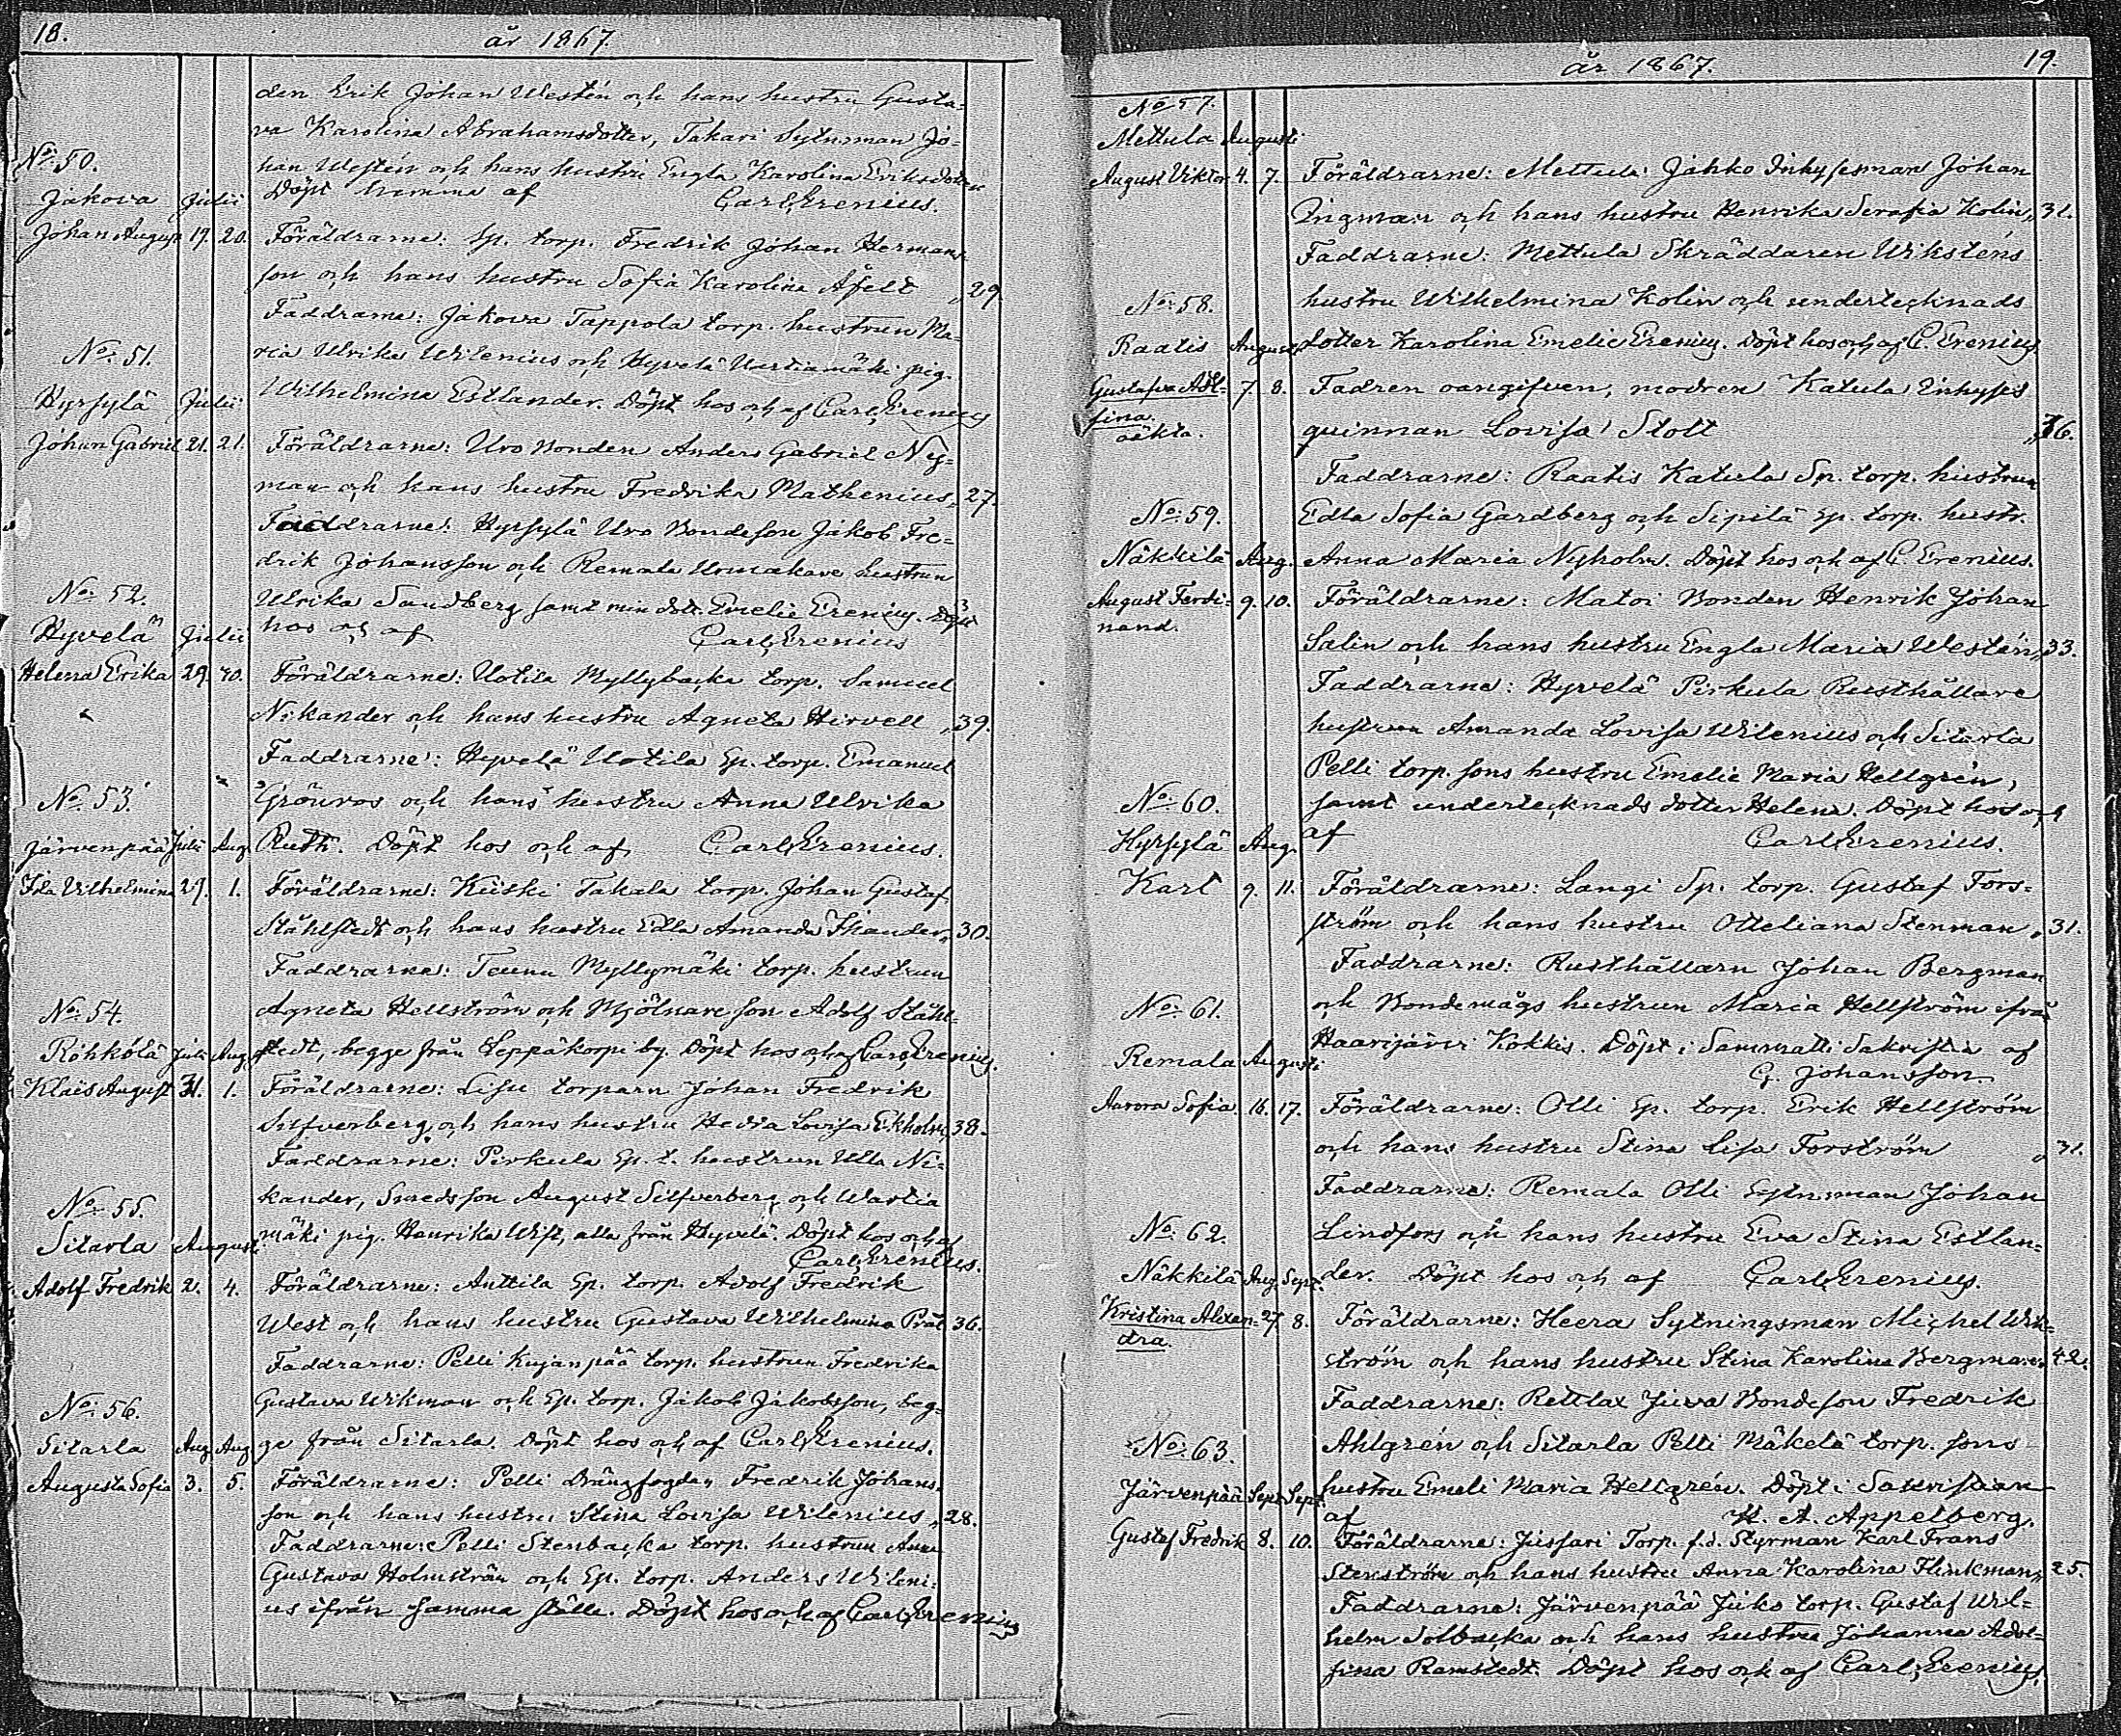 18.
år 1867.
den Erik Johan Westén och hans hustru Gusta-
va Karolina Abrahamsdotter, Takari Sytn:sman Jo-
No 50.
han Westén och hans hustru Engla Karolina Eriksdotter
Döpt hemma af Carl Erenius.
Jakova Julii
Johan August 19. 20. Föräldrarne: Sp. torp. Fredrik Johan Hermans-
son och hans hustru Sofia Karolina Åfelt „29.
Faddrarne: Jakova Tappola torp. hustrun Ma-
No: 51.
ria Ulrika Wilenius och Hyvelä Uartiamäki pig.
Hyrsylä Julii
Wilhelmina Estlander. Döpt hos och af Carl Erenius
Johan Gabriel 21. 21. Föräldrarne: Uro Bonden Anders Gabriel Ny-
man och hans hustru Fredrika Mathenius „27.
Faddrarne: Hyrsylä Uro Bondeson Jakob Fre-
drik Johansson och Remala hustrun
No: 52.
Ulrika Sandberg samt min dott. Emelie Erenius. Döpt
Hyvelä Julii
hos och af Carl Erenius
Helena Erika 29. 30. Föräldrarne: Uotila Myllybacka torp. Samuel
Nikander och hans hustru Agneta Hirvell „39.
Faddrarne: Hyvelä Uotila Sp. torp. Emanuel
No: 53.
Grönros och hans hustru Anna Ulrika
Järvenpää Julii Aug.
Ruth. Döpt hos och af Carl Erenius.
Ida Vilhelmina 29. 1. Föräldrarne: Kiiski Takala torp. Johan Gustaf
Ståhlstedt och hans hustru Edla Amanda Thander „30.
Faddrarne: Teunu Myllymäki torp. hustrun
No: 54.
Agneta Hellström och Mjölnare son Adolf Ståhl-
Röhkölä Julii Aug.
stedt, begge från Leppäkorpi by. Döpt hos och af Carl Erenius.
Klaës August 31. 1. Föräldrarne: Lisu torparn Johan Fredrik
Silfverberg och hans hustru Hedia Lovisa Ekholm „38.
Faddrarne: Pirkula Sp. t. hustrun Ulla Ni-
No: 55.
kander, Smedsson August Silfverberg och Wartia
Sitarla Augusti
mäki pig. Henrika Wist, alla från Hyvelä. Döpt hos och af
Carl Erenius.
Adolf Fredrik 2. 4. Föräldrarne: Anttila Sp. torp. Adolf Fredrik
West och hans hustru Gustava Wilhelmina Prat 36.
Faddrarne: Pelli Kujanpää torp. hustrun Fredrika
No: 56.
Gustava Wikman och Sp. torp. Jakob Jakobsson, beg-
Sitarla Aug. Aug.
ge från Sitarla. Döpt hos och af Carl Erenius.
Augusta Sofia 3. 5. Föräldrarne: Pelli Drängfogden Fredrik Johans-
son och hans hustru Stina Lovisa Wilenius „28.
Faddrarne: Pelli Stenbacka torp. hustrun Anna
Gustava Holmström och Sp. torp. Anders Wileni-
us ifrån samma ställe. Döpt hos och af Carl Erenius
år 1867.
19.
No 57.
Mettula Augusti
August Viktor 4. 7. Föräldrarne: Mettula Jahko Inhysesman Johan
Ingman och hans hustru Henrika Serafia Kolin „31.
Faddrarne: Mettula Skräddaren Wikstens
No: 58.
hustru Wilhelmina Kolin och undertecknads
Raatis Augusti
dotter Karolina Emelie Erenius. Döpt hos och af C. Erenius.
Gustafva Adl- 7. 8. Fadren oangifven, modren Katula Inhyses
fina.
oäkta.
quinnan Lovisa Stolt „36.
Faddrarne: Raatis Katula Sp. torp. hustrun
No: 59.
Edla Sofia Gardberg och Sipilä Sp. torp. hustr.
Näkkilä Aug.
Anna Maria Nyholm. Döpt hos och af C. Erenius.
August Ferdi- 9. 10. Föräldrarne: Matoi Bonden Henrik Johan
nand.
Salin och hans hustru Engla Maria Westén „33.
Faddrarne: Hyvelä Pirkula Rusthållare
hustrun Amanda Lovisa Wilenius och Sitarla
Pelli torp. sons hustru Emelie Maria Hellgren,
No: 60.
samt undertecknads dotter Helena. Döpt hos och
Hyrsylä Aug.
af Carl Erenius.
Karl 9. 11. Föräldrarne: Langi Sp. torp. Gustaf Fors-
ström och hans hustru Otteliana Stenman „31.
Faddrarne: Rusthållarn Johan Bergman
No: 61.
och Bondemågs hustrun Maria Hellström ifrån
Remala Augusti
Haarijärvi Kokkis. Döpt i Sammatti Sakristia af
G. Johansson.
Aurora Sofia. 16. 17. Föräldrarne: Olli Sp. torp. Erik Hellström
och hans hustru Stina Lisa Forström „31.
Faddrarne: Remala Olli Sytn:sman Johan
No: 62.
Lindfors och hans hustru Eva Stina Estlan-
Näkkilä Aug. Sept.
der. Döpt hos och af Carl Erenius.
Kristina Alexan- 27. 8. Föräldrarne: Heera Sytningsman Michel Wik-
dra.
ström och hans hustru Stina Karolina Bergman „42.
Faddrarne: Rettlax Juva Bondeson Fredrik
No: 63.
Ahlgrén och Sitarla Pelli Mäkelä torp. sons
Järvenpää Sept. Sept.
hustru Emeli Maria Hellgrén. Döpt i Sakristian
af K. A. Appelberg.
Gustaf Fredrik 8. 10. Föräldrarne: Jussari Torp. f.d. Styrman Karl Frans
Stenström och hans hustru Anna Karolina Flinkman „25.
Faddrarne: Järvenpää Juko torp. Gustaf Wil-
helm Solbacka och hans hustru Johanna Adol-
fina Ramstedt. Döpt hos och af Carl Erenius.